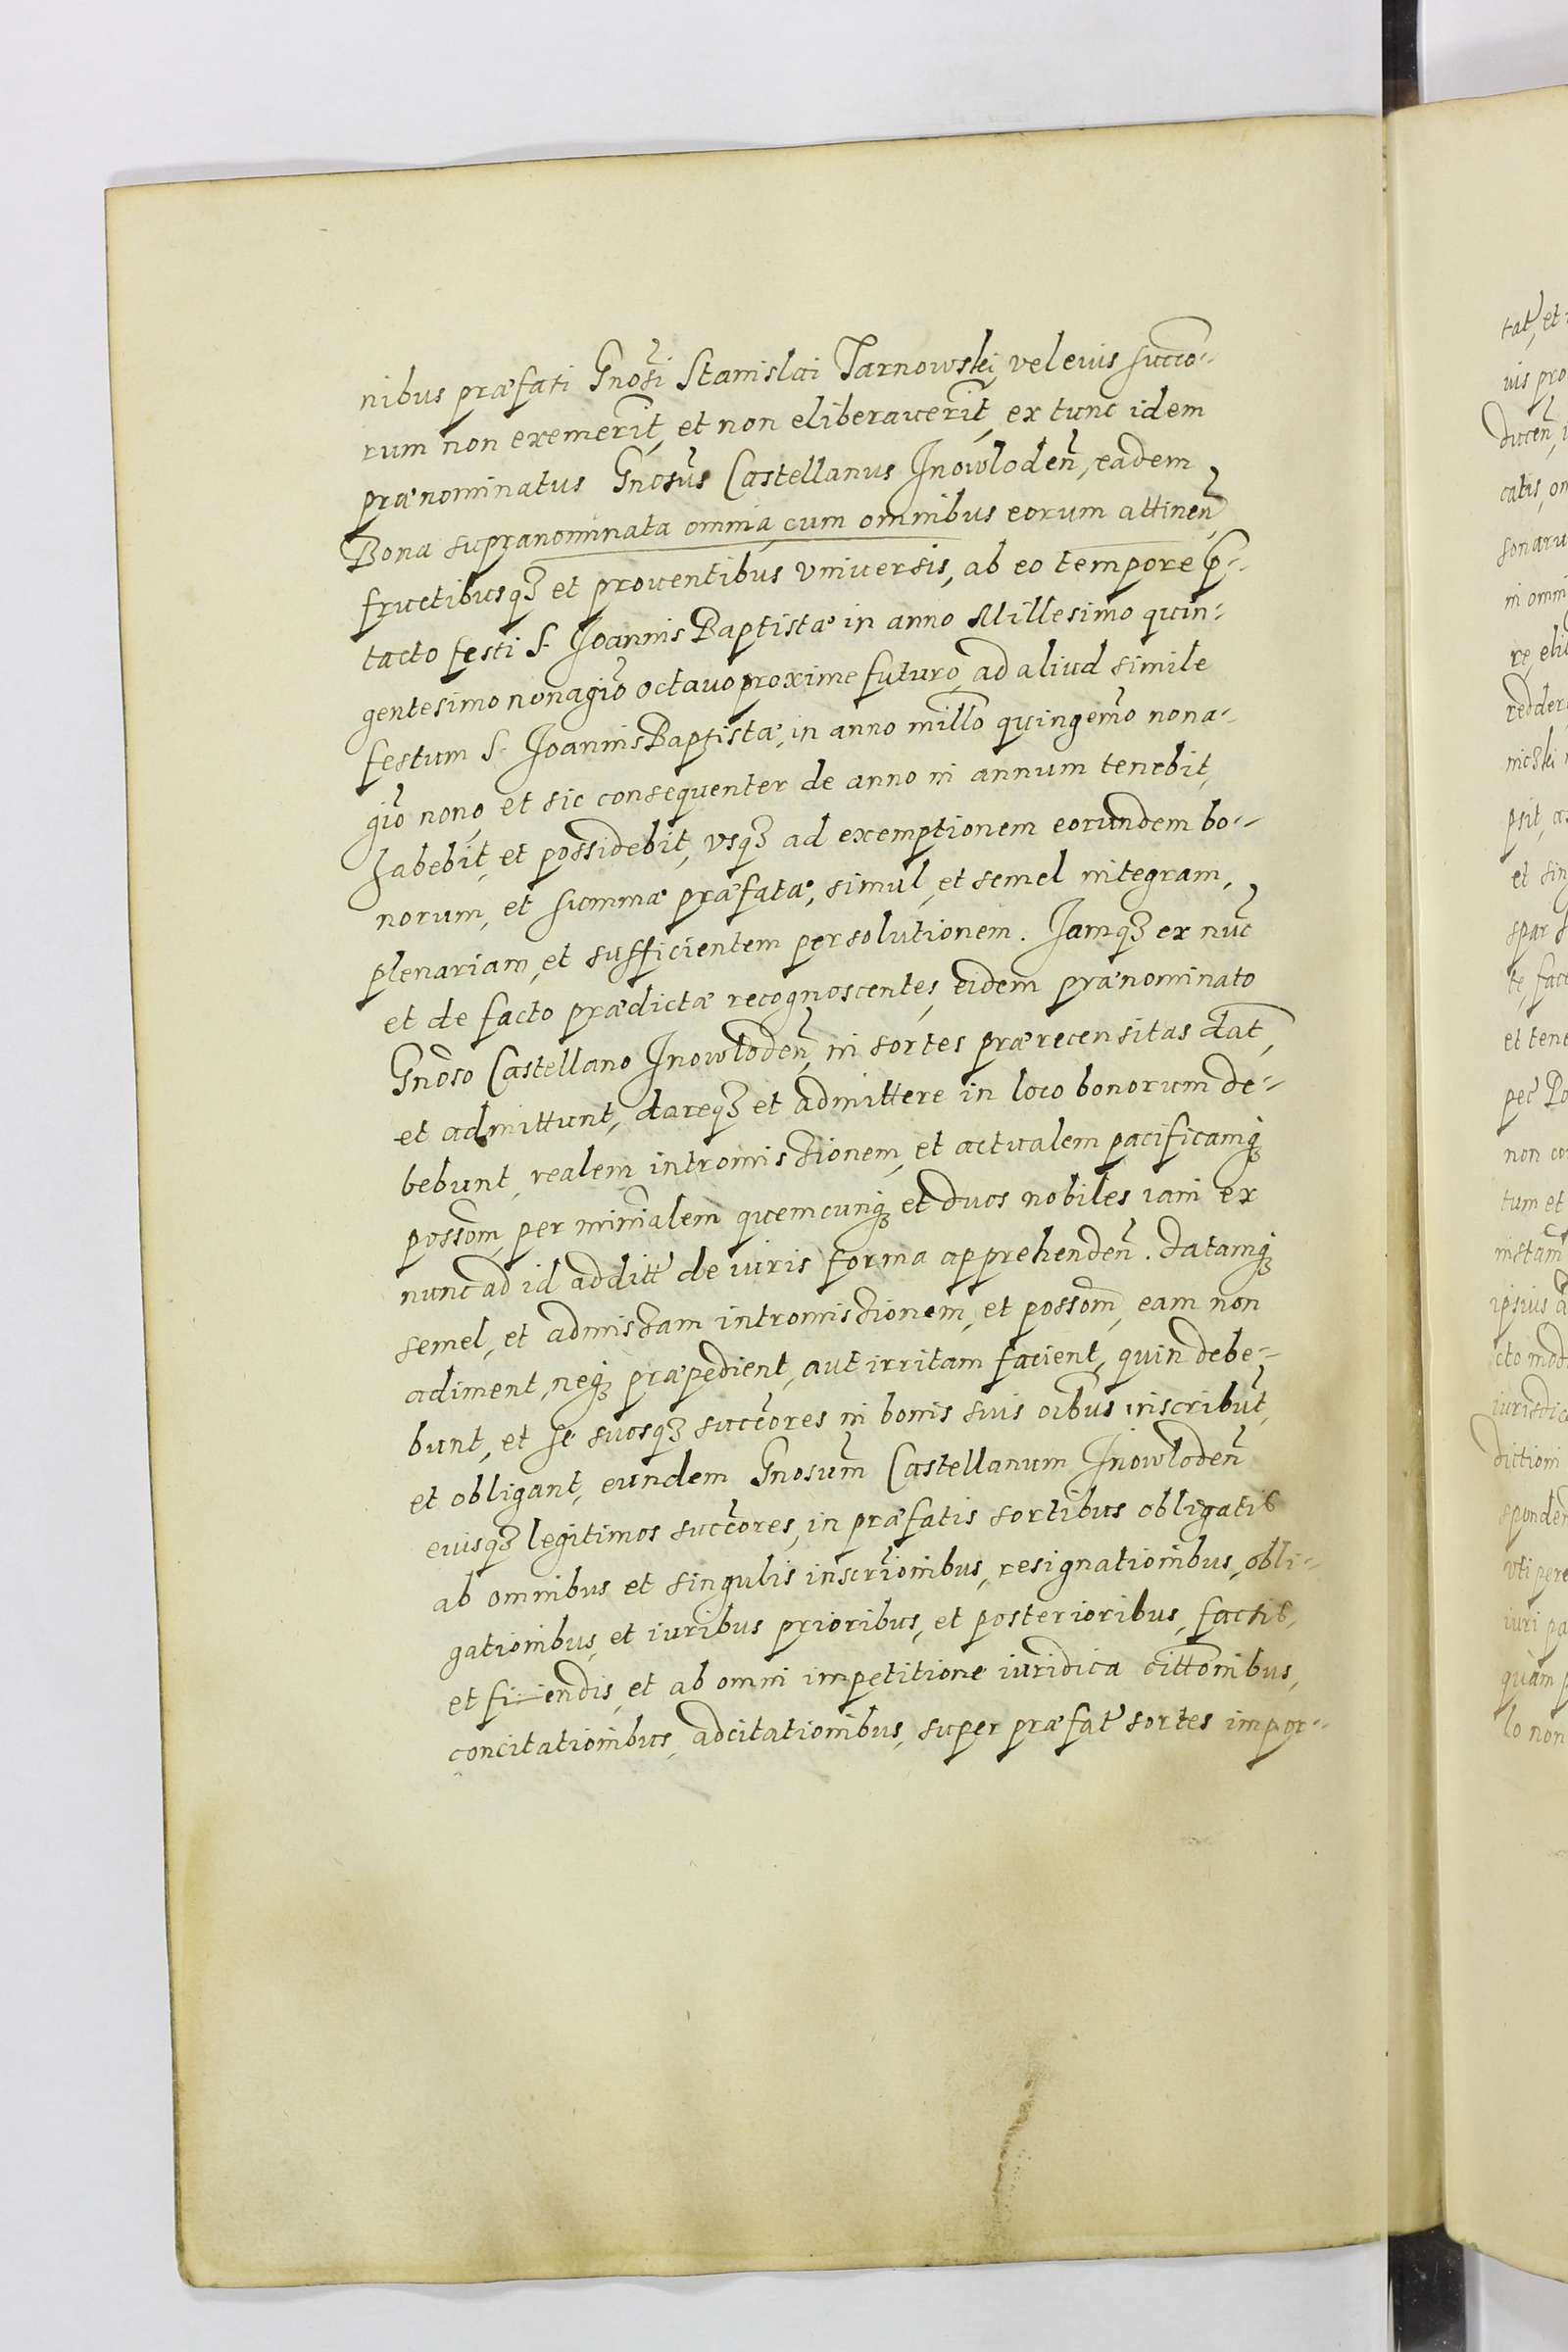 nibus præfati Gnosi Stanislai Tarnowski, vel eius succo-
rum non exemerit, et non eliberauerit, ex tunc idem
prænominatus Gnosus Castellanus Inowloden, eadem
Bona supranominata omnia, cum omnibus eorum attinen
fructibusq3 et prouentibus vniuersis, ab eo tempore p-
tacto festi S. Ioannis Baptistæ in anno Millesimo quin-
gentesimo nonagio octauo proxime futuro, ad aliud simile
festum S. Ioannis Baptistæ, in anno millo quingemo nona-
gio nono, et sic consequenter de anno in annum tenebit,
habebit, et possidebit, vsq3 ad exemptionem eorundem bo-
norum, et summæ præfatæ, simul, et semel integram,
plenariam, et sufficientem persolutionem. Iamq3 ex nuc
et de facto prædictæ recognoscentes, eidem prænominato
Gnoso Castellano Inowloden, in sortes prærecensitas dat,
et admittunt, dareq3 et admittere in loco bonorum de-
bebunt, realem intromissionem, et actualem pacificamq3
possom, per minialem quemcunq3 et duos nobiles iam ex
nunc ad id additt de iuris forma apprehenden. Datamq3
semel, et admissam intromissionem, et possom, eam non
adiment, neq3 præpedient, aut irritam facient, quin debe-
bunt, et se suosq3 succores in bonis suis oibus inscribut,
et obligant, eundem Gnosum Castellanum Inowloden
eiusq3 legitimos succores, in præfatis sortibus obligatis
ab omnibus et singulis inscrionibus, resignationibus, obli-
gationibus, et iuribus prioribus, et posterioribus, factis,
et fiendis, et ab omni impetitione iuridica cittonibus,
concitationibus, adcitationibus, super præfat sortes impor-